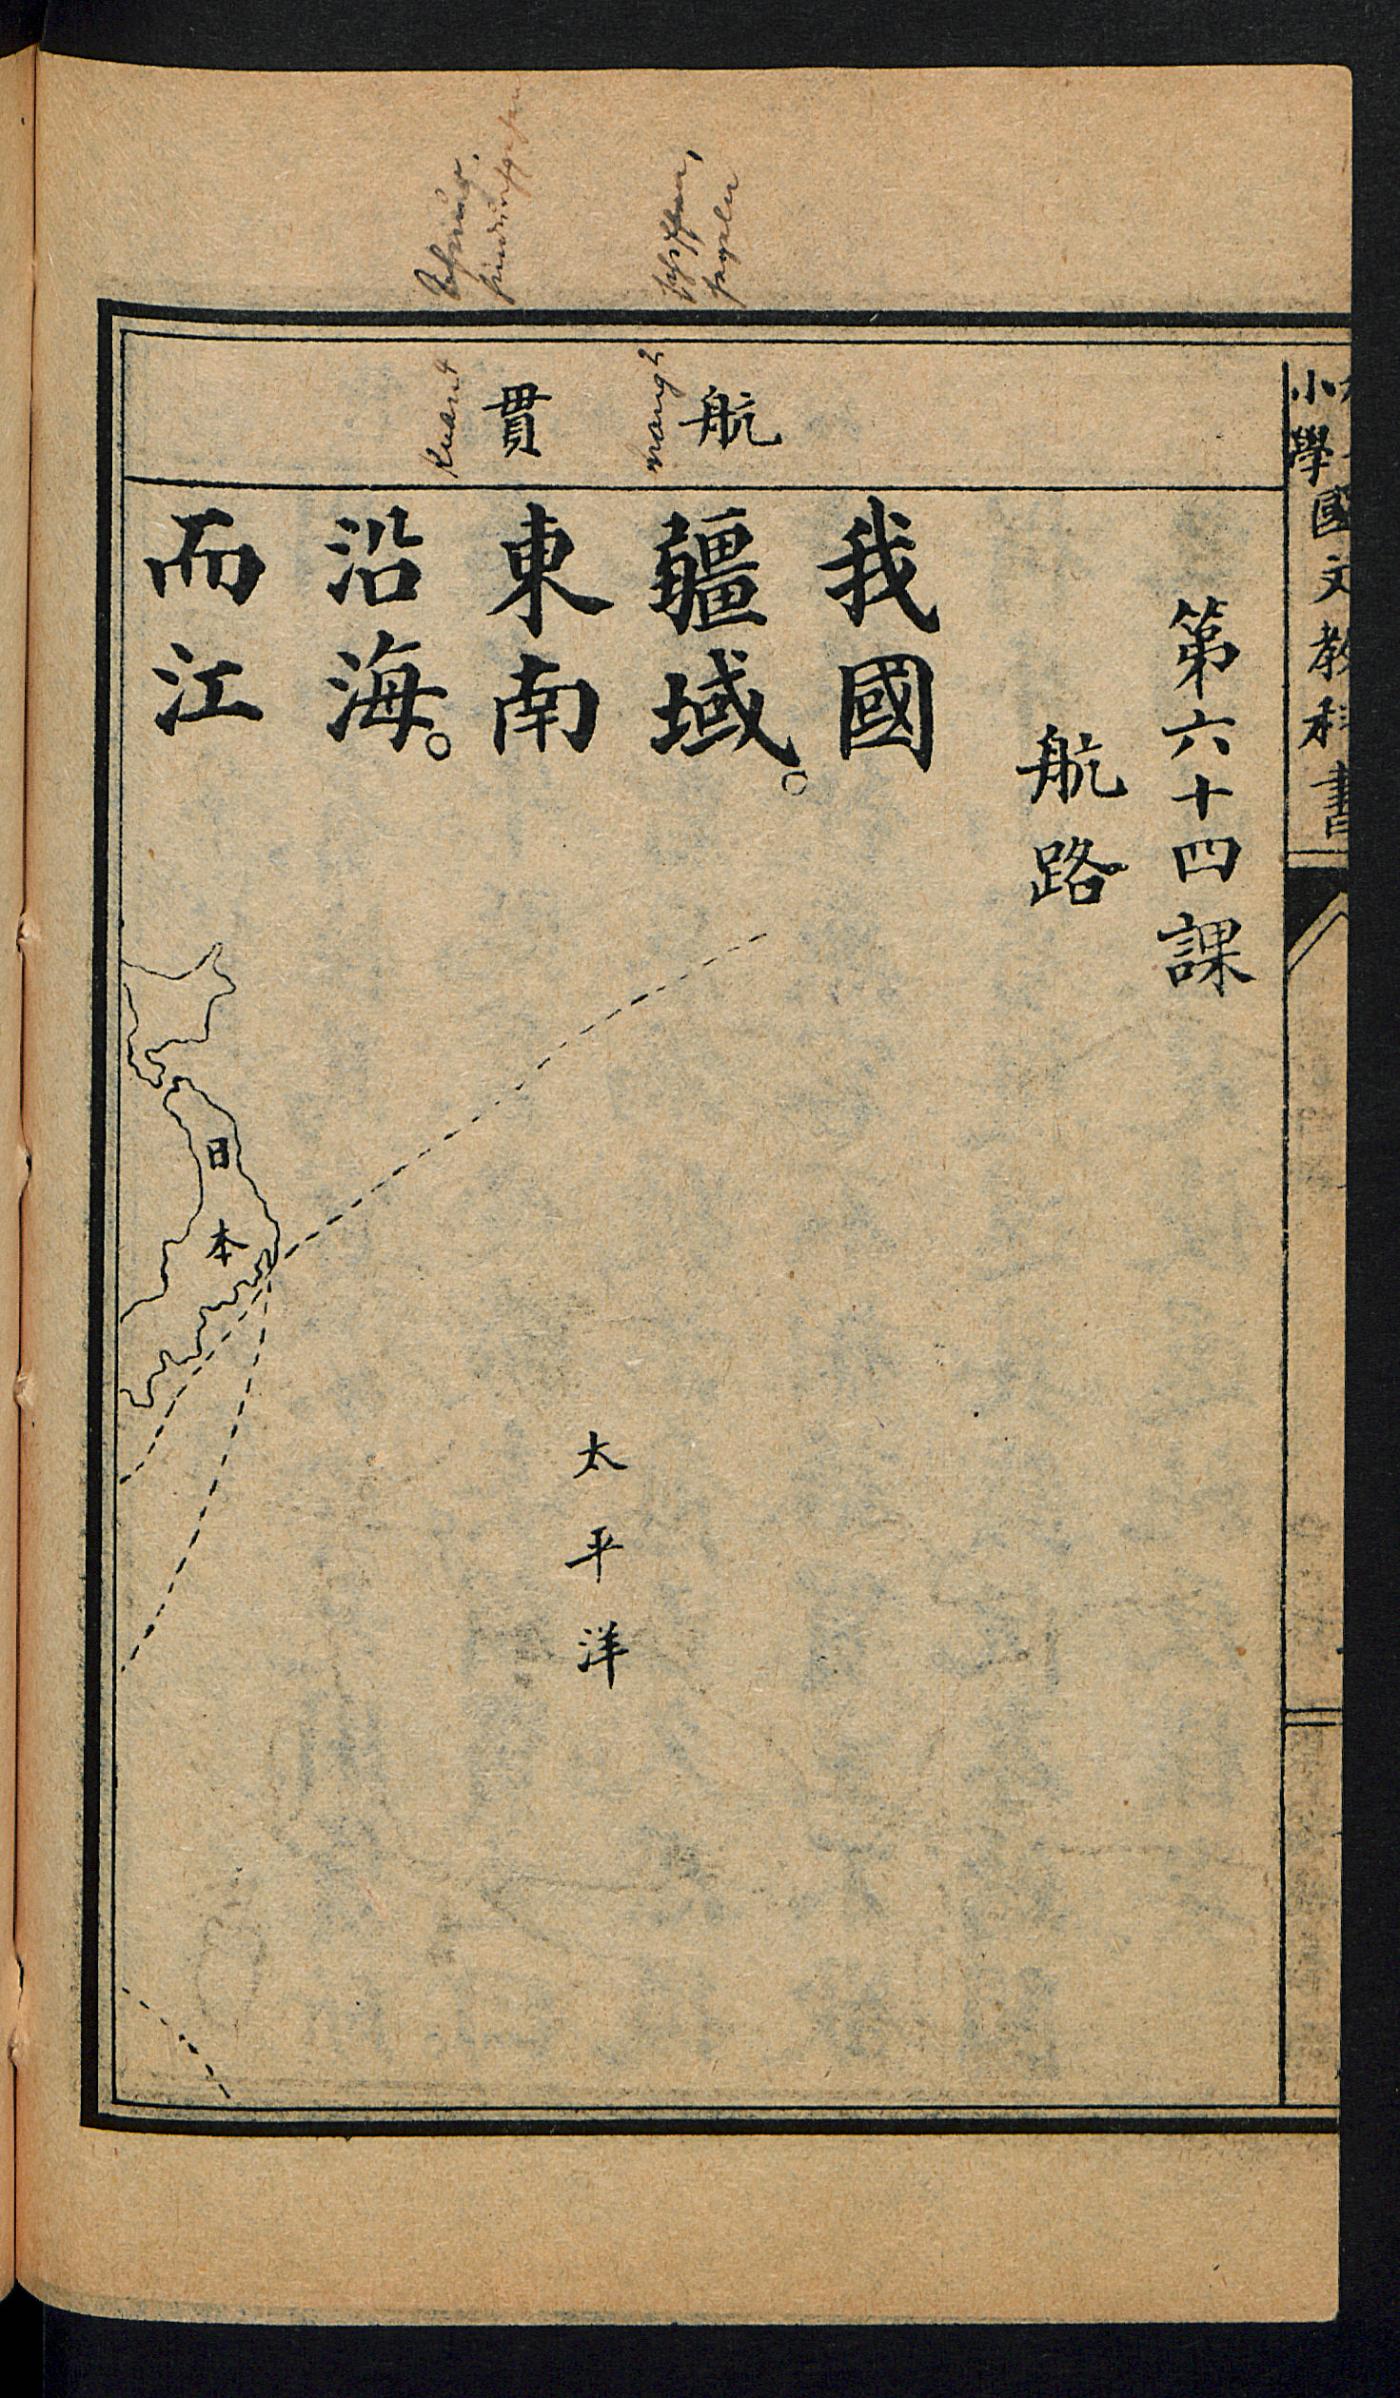 小學國文教科書
第六十四課
航路
航
貫
我國
疆域。
東南
沿海。
而江
日本
太平洋
hang2
kuan4